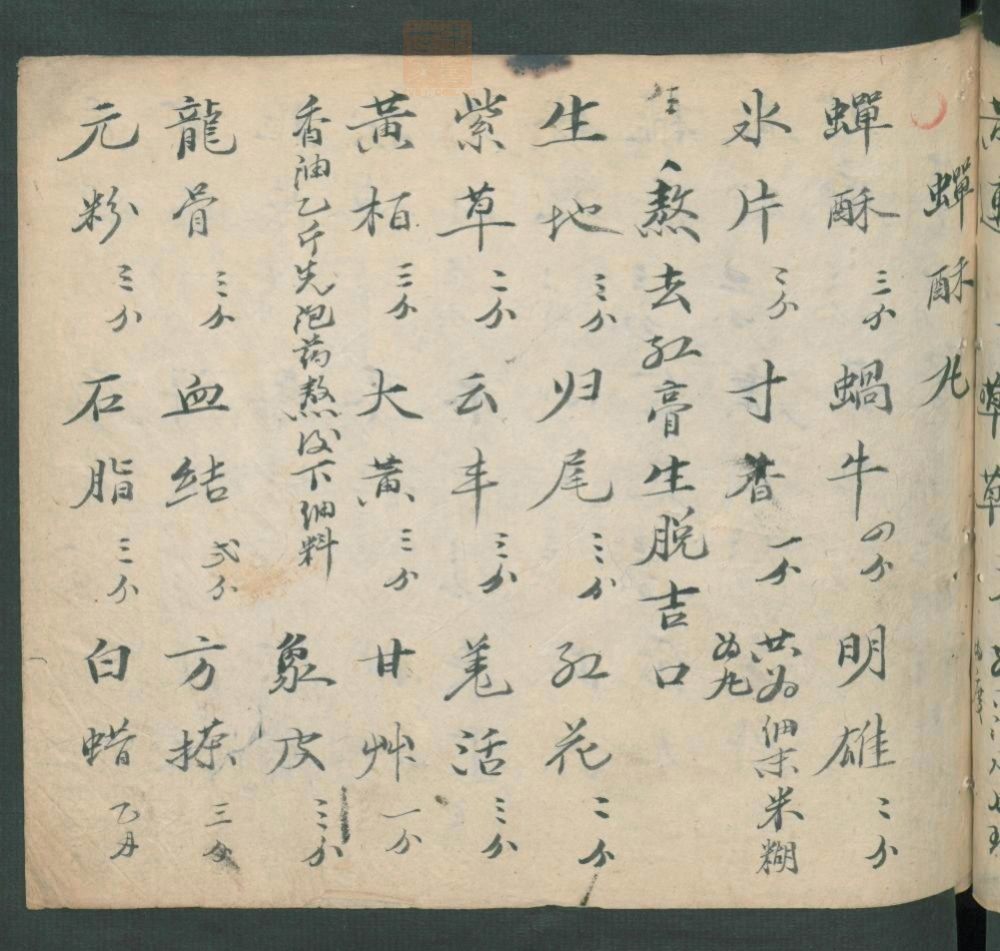 蟬酥九
蟬酥 三分 蝸牛 四分 明雄 二分
氷片 三分 寸香 一分 共為細末米糊為丸
熬去紅膏生脱吉口
生地 三分 归尾 三分 紅花 二分
紫草 二分 云丰 三分 羌活 三分
黃柏 三分 大黃 三分 甘艸 一分
香油乙斤先泡药熬後下細料 象皮 三分
龍骨 三分 血結 弍分 方揉 三分
元粉 三分 石脂 三分 白蜡 乙月